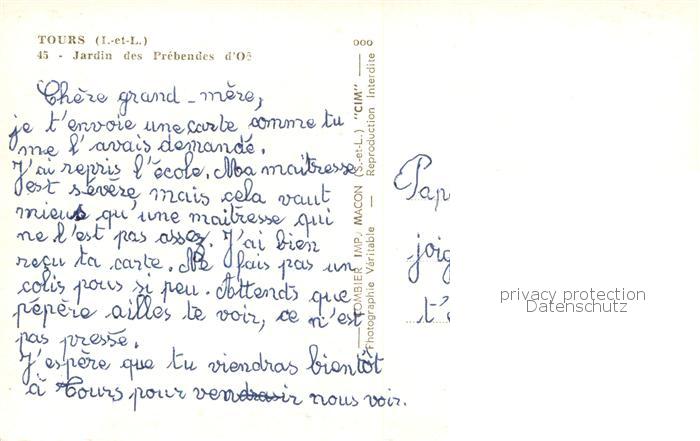 TOURS (I.-et-L.)
45 - Jardin des Prébendes d'Oë
Chère grand-mère,
je t'envoie une carte comme tu
me l'avais demandé.
J'ai repris l'école. Ma maitresse
est sévère mais cela vaut
mieux qu'une maitresse qui
ne l'est pas assez. J'ai bien
reçu ta carte. Ne fais pas un
colis pous si peu. Attends que
pépère ailles te voir, ce n'est
pas pressé.
J'espère que tu viendras bientôt
à Tours pour venir nous voir.
COMBIER IMP. MACON (S.-et-L.) "CIM"
Photographie Véritable — Reproduction Interdite
Pap
joig
t'e
privacy protection
Datenschutz